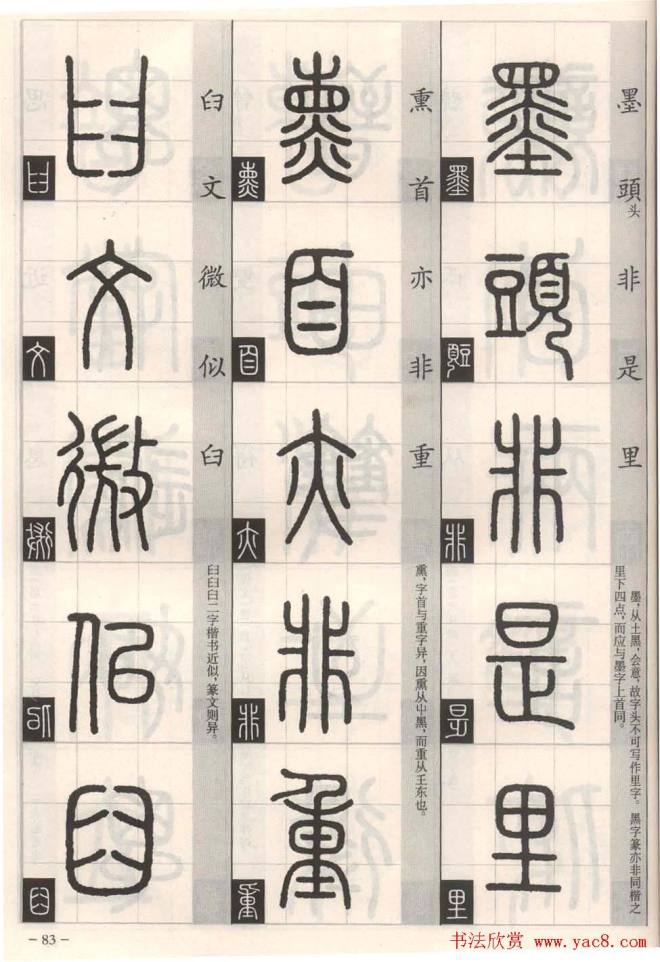 墨頭头非是里
墨，从土黑，会意，故字头不可写作里字。黑字篆亦非同楷之
里下四点，而应与墨字上首同。
墨頭非是里
熏首亦非重
熏，字首与重字异，因熏从屮黑，而重从王东也。
熏首亦非重
臼文微似臼
二字楷书近似，篆文则异。
臼文微似臼
－83－
书法欣赏 www.yac8.com